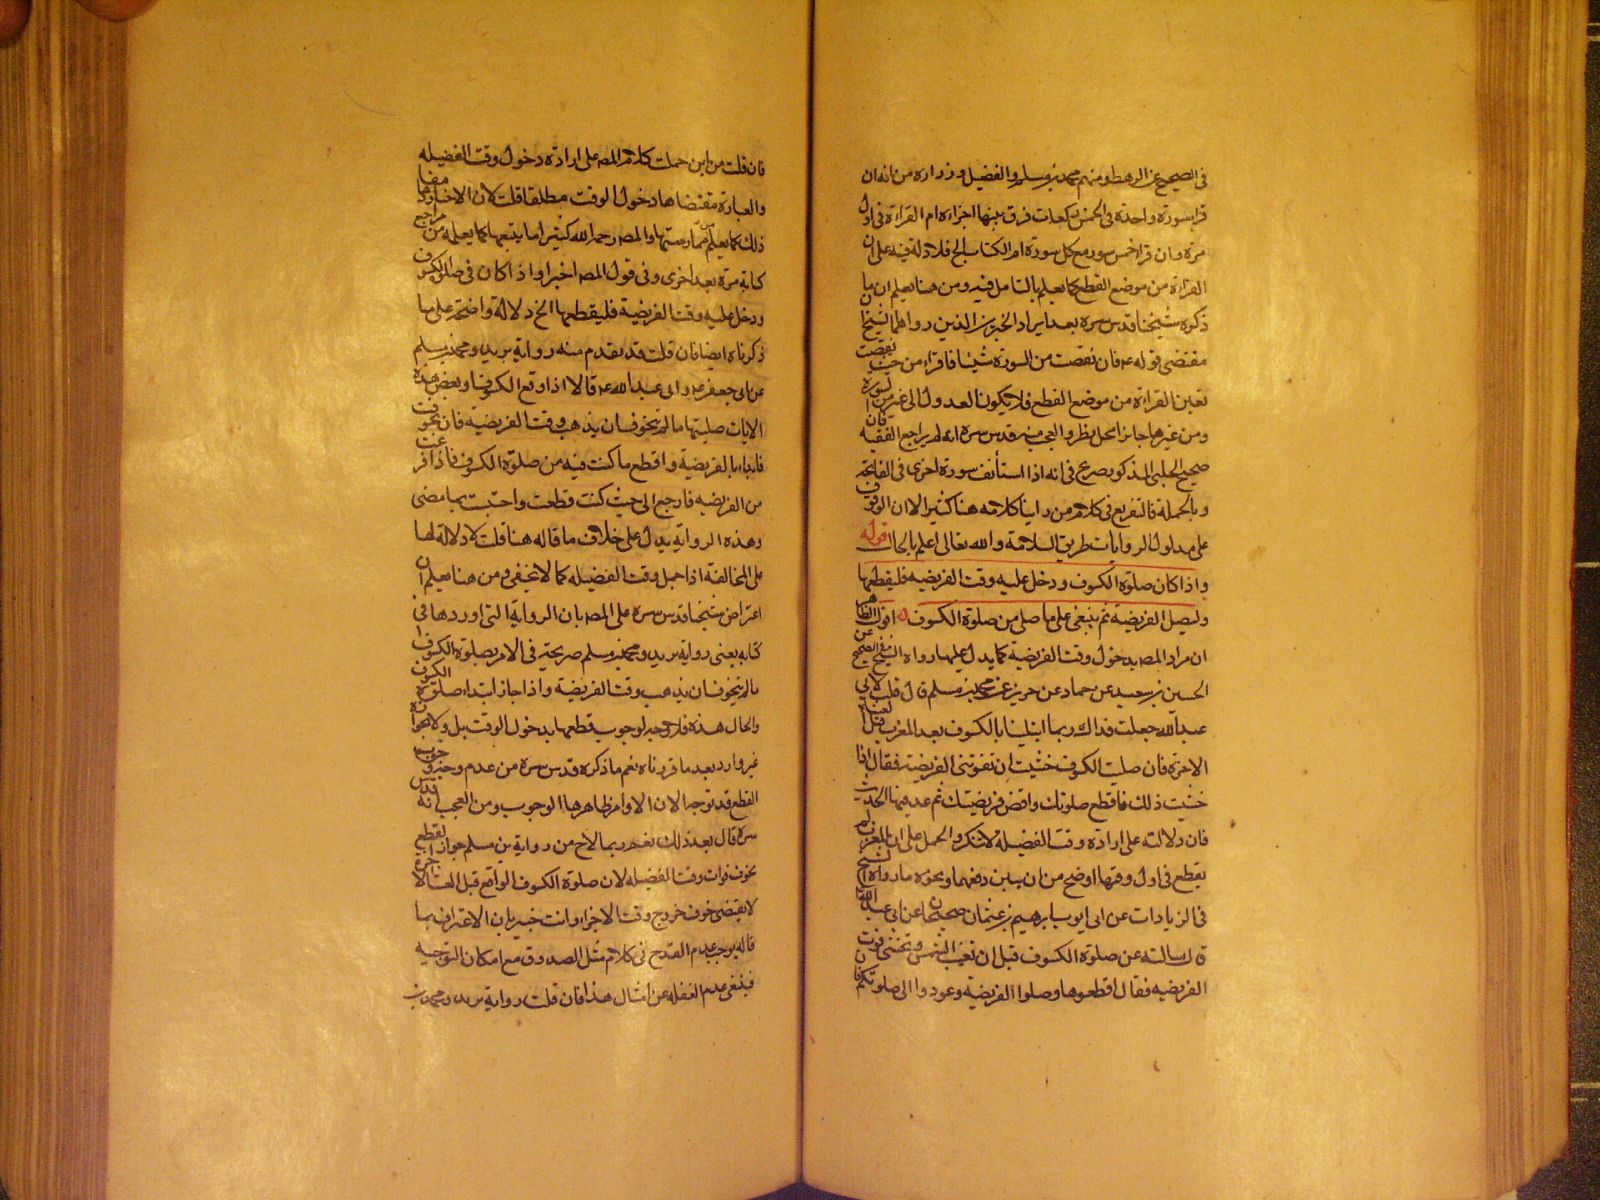 فى الصحيح عن الرهط ومنهم محمد بن مسلم والفضيل وزراره من انه ان
قرا سورة واحدة فى الخمس ركعات فرق بينها اجزاه ام القراءة فى اول
مرة وان قراء خمس سور مع كل سورة ام الكتاب الخ فلا دلالة فيه على ان
القراءة من موضع القطع كما يعلم بالتامل فيه ومن هنا يعلم ان ما
ذكره شيخنا قدس سره بعد ايراد الخبرين الذين رواهما الشيخ ان
مقتضى قوله ع فان نقصت من السورة شيئا فاقراء من حيث نقصت
تعين القراءة من موضع القطع فلا يكون العدول الى غيره من السورة
ومن غيرها جايزا محل نظر والعجب منه قدس سره انه لم يراجع الفقيه فان
صحيح الحلبى المذكور صريح فى انه اذا استأنف سورة اخرى فى الفاتحة
وبالجملة فالتفريع فى كلام من راينا كلامه هنا كثير الا ان الوقوف
على مدلول الروايات طريق السلامة والله تعالى اعلم بالحال قوله
واذا كان صلوة الكسوف ودخل عليه وقت الفريضه فليقطعها
وليصل الفريضة ثم يبنى على ما صلى من صلوة الكسوف اقول الظاهر
ان مراد المصـ بدخول وقت الفريضة كما يدل عليها رواه الشيخ فى الصحيح عن
الحسين بن سعيد عن حماد عن حريز عن محمد بن مسلم قال قلت لابى
عبد الله جعلت فداك ربما ابتلينا بالكسوف بعد المغرب قبل العشاء
الاخرة فان صليت الكسوف خشيت ان تفوتنى الفريضة فقال اذا
خشيت ذلك فاقطع صلوتك واقض فريضتك ثم عد فيها الحديث
فان دلالته على ارادة وقت الفضيلة لا تنكر والحمل على ان المغرب لم
يقطع فى اول وقتها اوضح من ان يبين دفعها ونحوه ما رواه الشيخ
فى الزيادات عن ابى ايوب ابرهيم بن عثمان صحيحا عن ابى عبد الله ع
قال سالته عن صلوة الكسوف قبل ان تغيب الشمس وتخشى فوت
الفريضه فقال اقطعوها وصلوا الفريضة وعودوا الى صلوتكم فان
فان قلت من اين حملت كلام المصـ على ارادة دخول وقت الفضيله
والعبارة مقتضاها دخول الوقت مطلقا قلت لان الاخبار مفادها
ذلك كما يعلم من ممارستها والمصـ رحمه الله كثيرا ما يتبعها كما يعلمه من راجع
كتابه مرة بعد اخرى وفى قول المصـ اخيرا واذا كان فى صلوة الكسوف
ودخل عليه وقت الفريضة فليقطعها الخ دلالة واضحة على ما
ذكرناه ايضا فان قلت قد تقدم منه رواية بريد ومحمد بن مسلم
عن ابى جعفر ع وابى عبد الله ع قالا اذا وقع الكسوف او بعض هذه
الايات صليتها ما لم تتخوف ان يذهب وقت الفريضة فان تخوفت
فابداء بالفريضة واقطع ما كنت فيه من صلوة الكسوف فاذا فرغت
من الفريضه فارجع الى حيث كنت قطعت واحتسب بما مضى
وهذه الرواية يدل على خلاف ما قاله هنا قلت لا دلالة لها
على المخالفة اذا حمل وقت الفضيله كما لا يخفى ومن هنا يعلم ان
اعتراض شيخنا قدس سره على المصـ بان الرواية التى اوردها فى
كتابه يعنى رواية بريد ومحمد بن مسلم صريحة فى الامر بصلوة الكسوف
ما لم يتخوف ان يذهب وقت الفريضة واذا جاز ابتداء صلوة الكسوف
والحال هذه فلا وجه لوجوب قطعها بدخول الوقت بل ولا لجوازه
غير وارد بعد ما قررناه نعم ما ذكره قدس سره من عدم وجه وجوب
القطع قد توجه الا ان الاوامر ظاهرها الوجوب ومن العجب انه قدس
سره قال بعد ذلك نعم ربما لاح من رواية بن مسلم جواز القطع
بخوف فوات وقت الفضيله لان صلوة الكسوف الواقع قبل العشاء الاخرة
لا يقتضى خوف خروج وقت الاجزاء وانت خبير بان الاعتراف بما
قاله يوجب عدم القدح فى كلام مثل الصدوق مع امكان التوجيه
فينبغى عدم الغفله عن امثال هذا فان قلت رواية بريد ومحمد بن